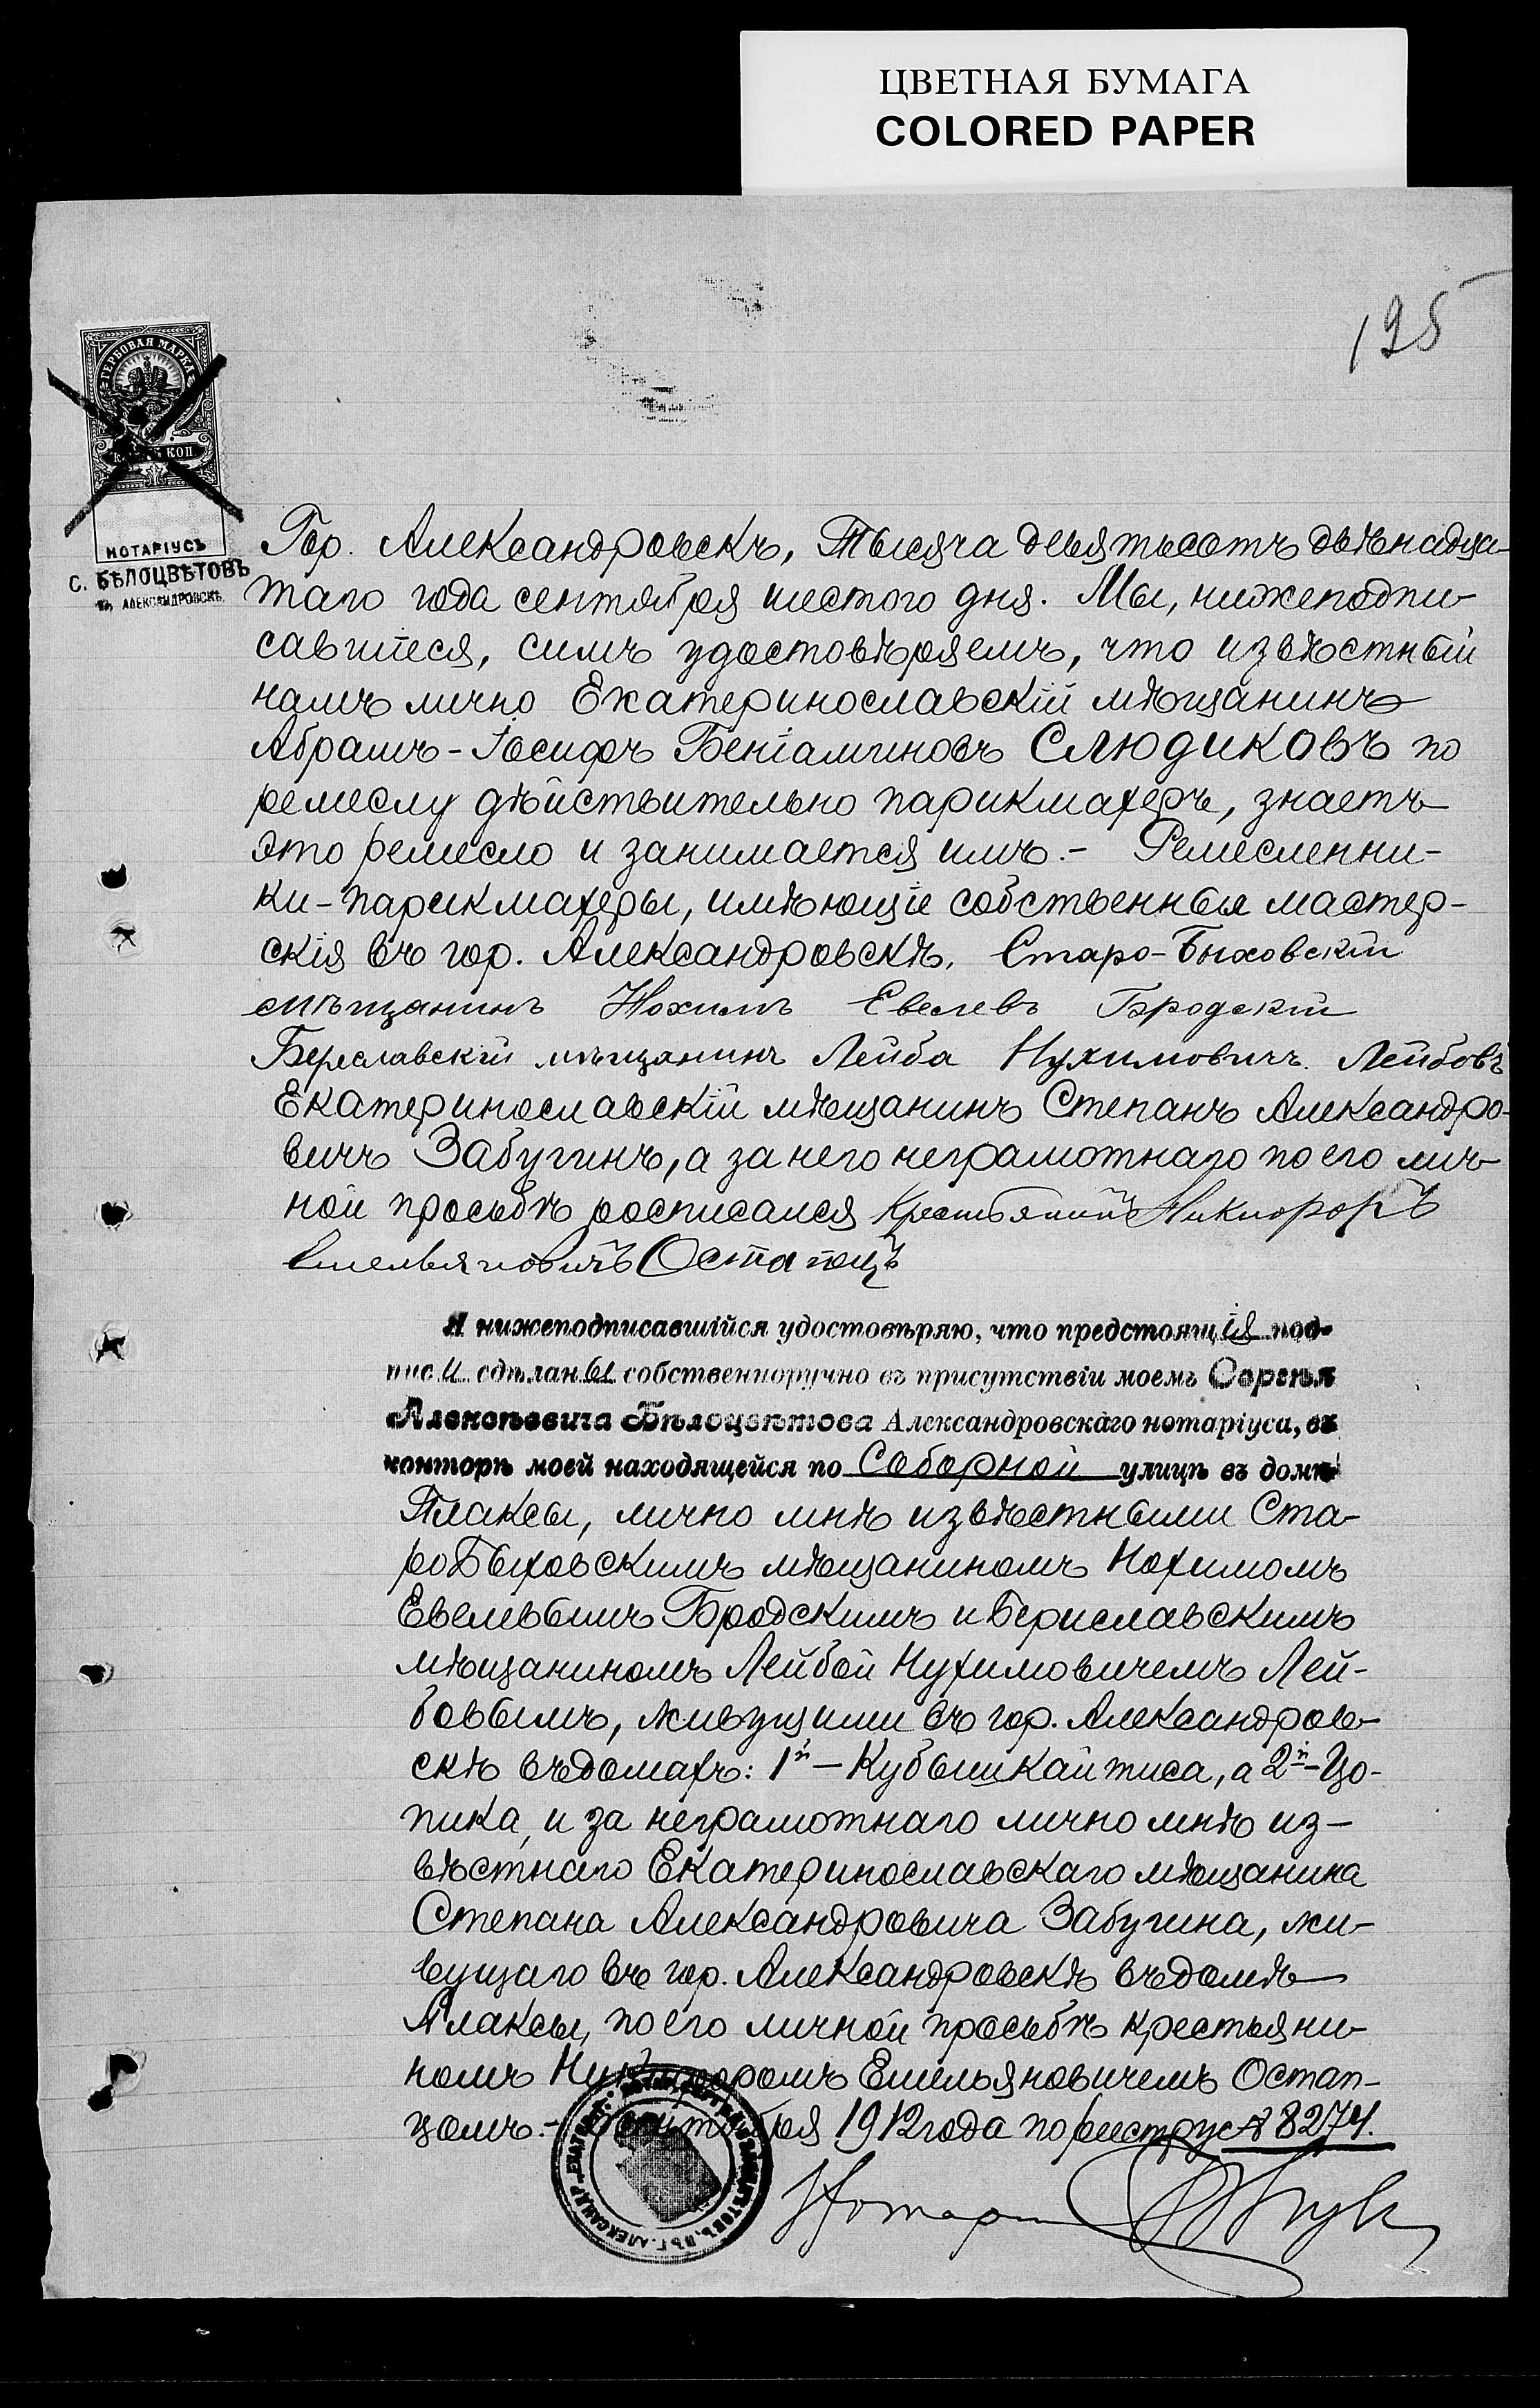 ЦВЕТНАЯ БУМАГА
COLORED PAPER
195
ГЕРБОВАЯ МАРКА
КОП
НОТАРІУСЪ
С. БѢЛОЦВѢТОВЪ
АЛЕКСАНДРОВСКЪ.
Гор. Александровскъ, Тысяча девятьсотъ двѣнадца-
таго года сентября шестого дня. Мы, нижеподпи-
савшіеся, симъ удостовѣряемъ, что извѣстный
намъ лично Екатеринославскій мѣщанинъ
Абрамъ-Іосифъ Беніаминовъ Слюдиковъ по
ремеслу дѣйствительно парикмахеръ, знаетъ
это ремесло и занимается имъ.- Ремесленни-
ки-парикмахеры, имѣющіе собственныя мастер-
скія въ гор. Александровскѣ. Старо-Быховскій
мѣщанинъ Нохимъ Евелевъ Бродскій
Береславскій мѣщанинъ Лейба Нухимовичъ Лейбовъ
Екатеринославскій мѣщанинъ Степанъ Александро-
вичъ Забугинъ, а за него неграмотнаго по его лич-
ной просьбѣ росписался Крестьянинъ Никифоръ
Емельяновичъ Остапецъ
Я нижеподписавшійся удостовѣряю, что предстоящія под-
писи сдѣланы собственноручно въ присутствіи моемъ Сергѣя
Алексѣевича Бѣлоцвѣтова Александровскаго нотаріуса, въ
конторѣ моей находящейся по Соборной улицѣ въ домѣ
Плаксы, лично мнѣ извѣстными Ста-
роБыховскимъ мѣщаниномъ Нохимомъ
Евелевымъ Бродскимъ и Бериславскимъ
мѣщаниномъ Лейбой Нухимовичемъ Лей-
бовымъ, живущими въ гор. Александров-
скѣ въ домахъ: 1й - Кубышкайтиса, а 2й - Цо-
пика, и за неграмотнаго лично мнѣ из-
вѣстнаго Екатеринославскаго мѣщанина
Степана Александровича Забугина, жи-
вущаго въ гор. Александровскѣ въ домѣ
Плаксы, по его личной просьбѣ крестьяни-
номъ Никифоромъ Емельяновичемъ Остап-
цомъ.- Сентября 1912 года по реестру № 8274.
Нотар